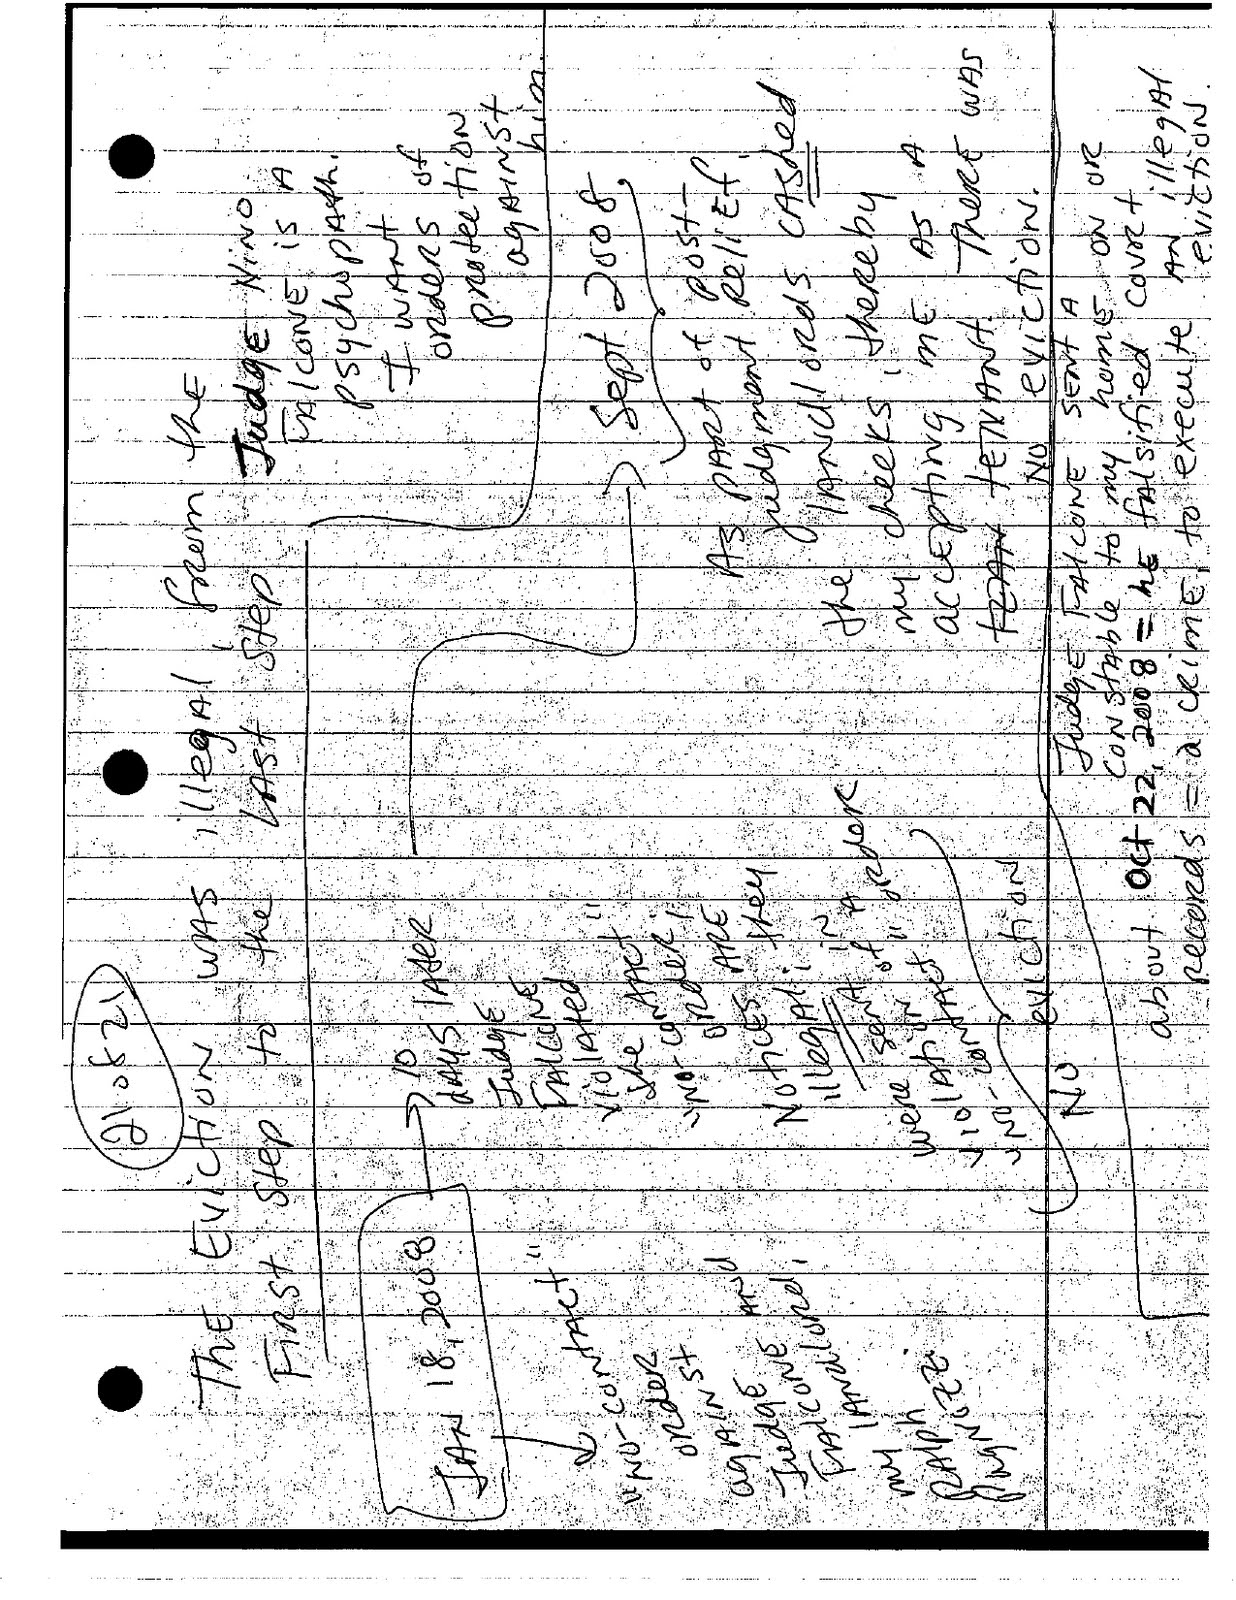 21 of 21
The Eviction was illegal, from the
First step to the last step
Judge Nino
Falcone is a
psychopath.
I want
orders of
protection
against
him
Jan 18, 2008
"No-contact"
order
against
Judge
Falcone and
my landlord,
Ralph
10
days later
Judge
Falcone
violated
the
"no-contact"
order!
Notices are
illegal; they
were sent in
violation of a
"no-contact" order
No eviction
Sept 2008
As part of post-
judgment relief,
the landlords cashed
my checks; thereby
accepting me as a
tenant. There was
no eviction.
Judge Falcone sent a
constable to my home on or
about Oct 22, 2008 = he falsified court
records = a crime, to execute an illegal
eviction.